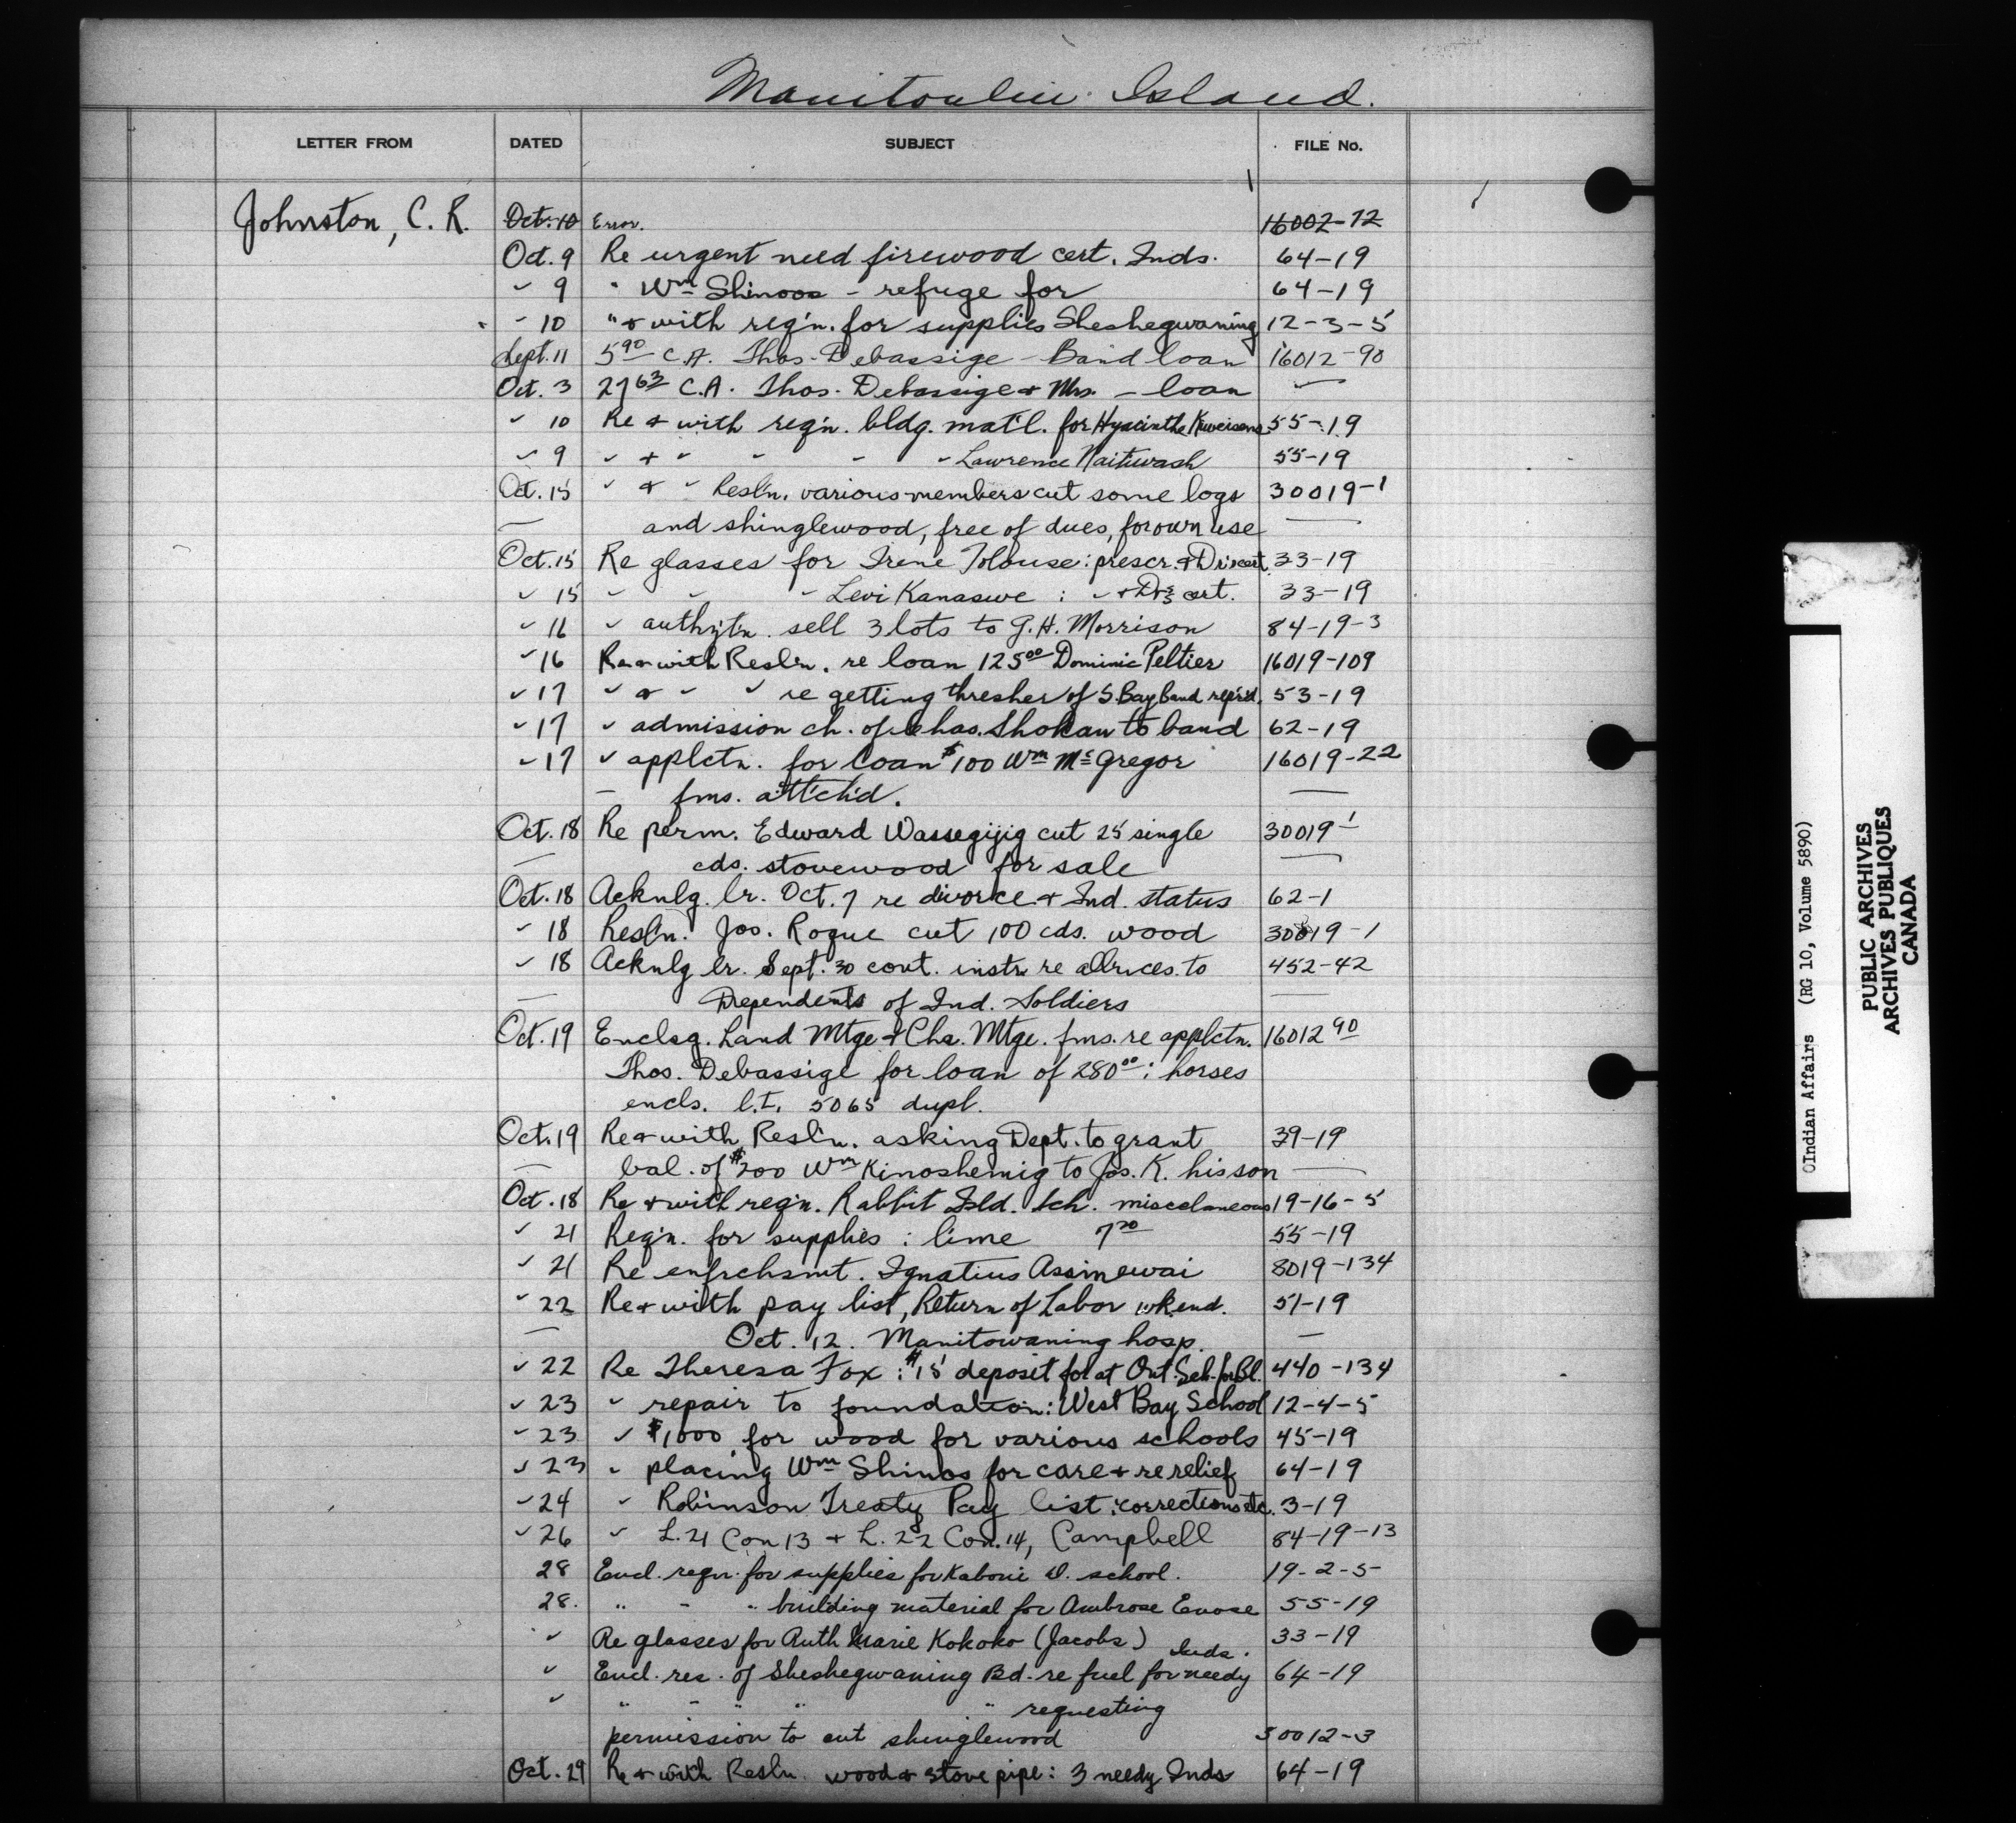 Manitoulin Island.
LETTER FROM DATED SUBJECT FILE No.
Johnston, C. R. Oct. 10 Error. 16002-72
Oct. 9 Re urgent need firewood cert. Inds. 64-19
" 9 " Wm Shinoos - refuge for 64-19
" 10 " & with req'n. for supplies Sheshegwaning 12-3-5
Sept. 11 5 90 C.A. Thos. Debassige - Band loan 16012-90
Oct. 3 27 63 C.A. Thos. Debassige & Mrs. - loan "
" 10 Re & with req'n. bldg. mat'l. for Hyacinthe 55-19
" 9 " & " " " " Lawrence 55-19
Oct. 15 " & " Resl'n. various members cut some logs 30019-1
— and shinglewood, free of dues, for own use —
Oct. 15 Re glasses for Irene Tolouse: prescr. & Dr's cert. 33-19
" 15 " " " Levi Kanasewe : " & Dr's cert. 33-19
" 16 " authzt'n. sell 3 lots to G. H. Morrison 84-19-3
" 16 Re & with Resl'n. re loan 125 00 Dominic Peltier 16019-109
" 17 " & " " re getting thresher of S. Bay band rep'r'd. 53-19
" 17 " admission ch. of Chas. Shokan to band 62-19
" 17 " applctn. for loan $100 Wm McGregor 16019-22
— fms. att'ch'd. —
Oct. 18 Re perm. Edward Wassegijig cut 25 single 30019-1
— cds. stovewood for sale —
Oct. 18 Acknlg. lr. Oct. 7 re divorce & Ind. status 62-1
" 18 Resl'n. Jos. Roque cut 100 cds. wood 30019-1
" 18 Acknlg lr. Sept. 30 cont. instr. re allnces. to 452-42
— Dependents of Ind. Soldiers —
Oct. 19 Enclsg. Land Mtge & Cha. Mtge. fms. re applctn. 16012 90
Thos. Debassige for loan of 280 00 : horses
encls. l.t. 5065 dupl.
Oct. 19 Re & with Resl'n. asking Dept. to grant 39-19
— bal. of $200 Wm Kinoshemig to Jos. K. his son —
Oct. 18 Re & with req'n. Rabbit Isld. sch. miscelaneous 19-16-5
" 21 Req'n. for supplies : lime 7 20 55-19
" 21 Re enfrchsmt. Ignatius Assinewai 8019-134
" 22 Re & with pay list, Return of Labor wk end. 51-19
— Oct. 12. Manitowaning hosp. —
" 22 Re Theresa Fox : $15 deposit for at Ont. Sch. for Bl. 440-134
" 23 " repair to foundation: West Bay School 12-4-5
" 23 " $1,000 for wood for various schools 45-19
" 23 " placing Wm Shinos for care & re relief 64-19
" 24 " Robinson Treaty Pay list : corrections etc. 3-19
" 26 " L. 21 Con 13 & L. 22 Con. 14, Campbell 84-19-13
28 Encl. reqn. for supplies for Kaboni D. school. 19-2-5
28. " " " building material for Ambrose Enose 55-19
" Re glasses for Ruth Marie Kokoko (Jacobs) 33-19
" Encl. res. of Sheshegwaning Bd. re fuel for needy Inds. 64-19
" " " " " " requesting
permission to cut shinglewood 30012-3
Oct. 29 Re & with Resln. wood & stove pipe : 3 needy Inds 64-19
Indian Affairs (RG 10, Volume 5890)
PUBLIC ARCHIVES
ARCHIVES PUBLIQUES
CANADA